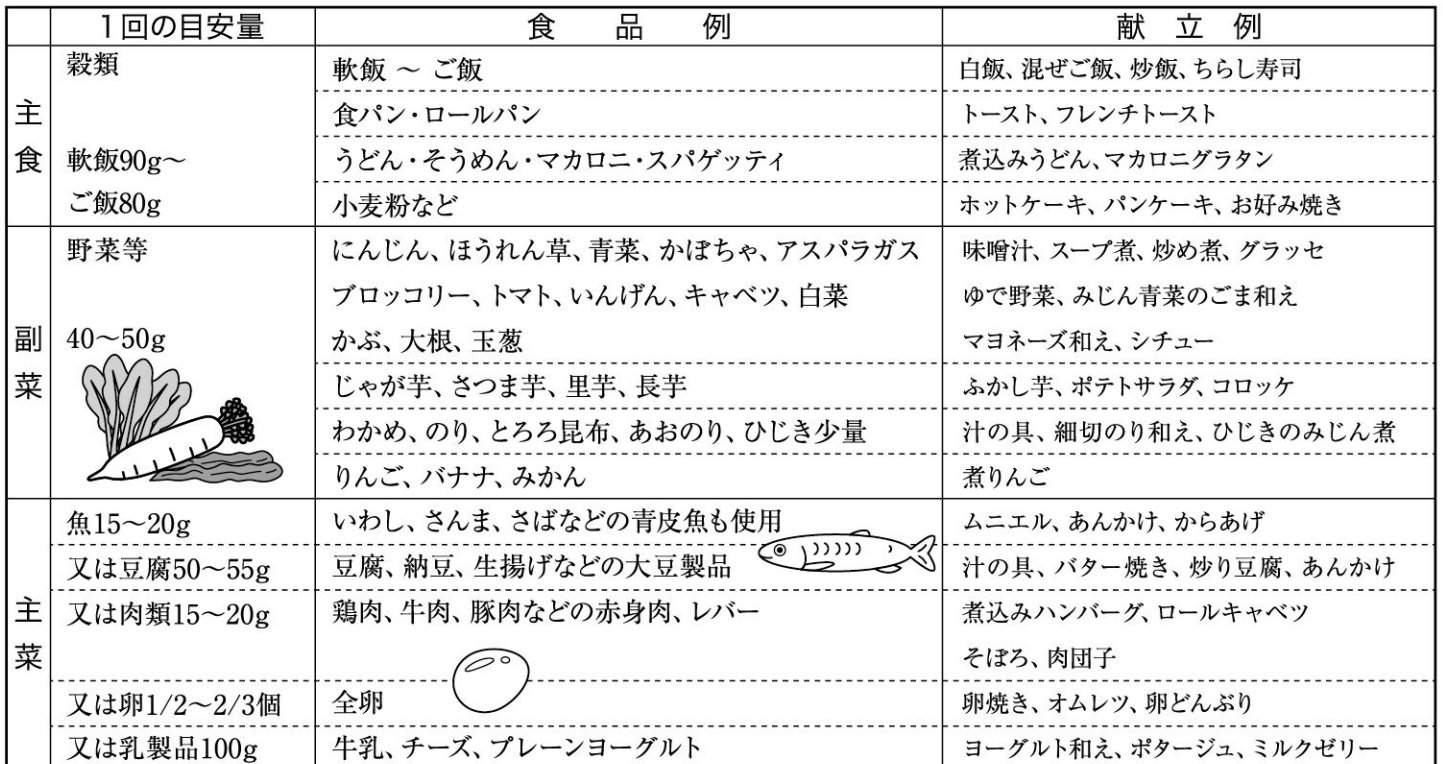 1回の目安量 食品例 献立例
主食
穀類 軟飯 ～ ご飯 白飯、混ぜご飯、炒飯、ちらし寿司
食パン・ロールパン トースト、フレンチトースト
軟飯90g～ うどん・そうめん・マカロニ・スパゲッティ 煮込みうどん、マカロニグラタン
ご飯80g 小麦粉など ホットケーキ、パンケーキ、お好み焼き
副菜
野菜等 にんじん、ほうれん草、青菜、かぼちゃ、アスパラガス 味噌汁、スープ煮、炒め煮、グラッセ
ブロッコリー、トマト、いんげん、キャベツ、白菜 ゆで野菜、みじん青菜のごま和え
40～50g かぶ、大根、玉葱 マヨネーズ和え、シチュー
じゃが芋、さつま芋、里芋、長芋 ふかし芋、ポテトサラダ、コロッケ
わかめ、のり、とろろ昆布、あおのり、ひじき少量 汁の具、細切のり和え、ひじきのみじん煮
りんご、バナナ、みかん 煮りんご
主菜
魚15～20g いわし、さんま、さばなどの青皮魚も使用 ムニエル、あんかけ、からあげ
又は豆腐50～55g 豆腐、納豆、生揚げなどの大豆製品 汁の具、バター焼き、炒り豆腐、あんかけ
又は肉類15～20g 鶏肉、牛肉、豚肉などの赤身肉、レバー 煮込みハンバーグ、ロールキャベツ
そぼろ、肉団子
又は卵1/2～2/3個 全卵 卵焼き、オムレツ、卵どんぶり
又は乳製品100g 牛乳、チーズ、プレーンヨーグルト ヨーグルト和え、ポタージュ、ミルクゼリー